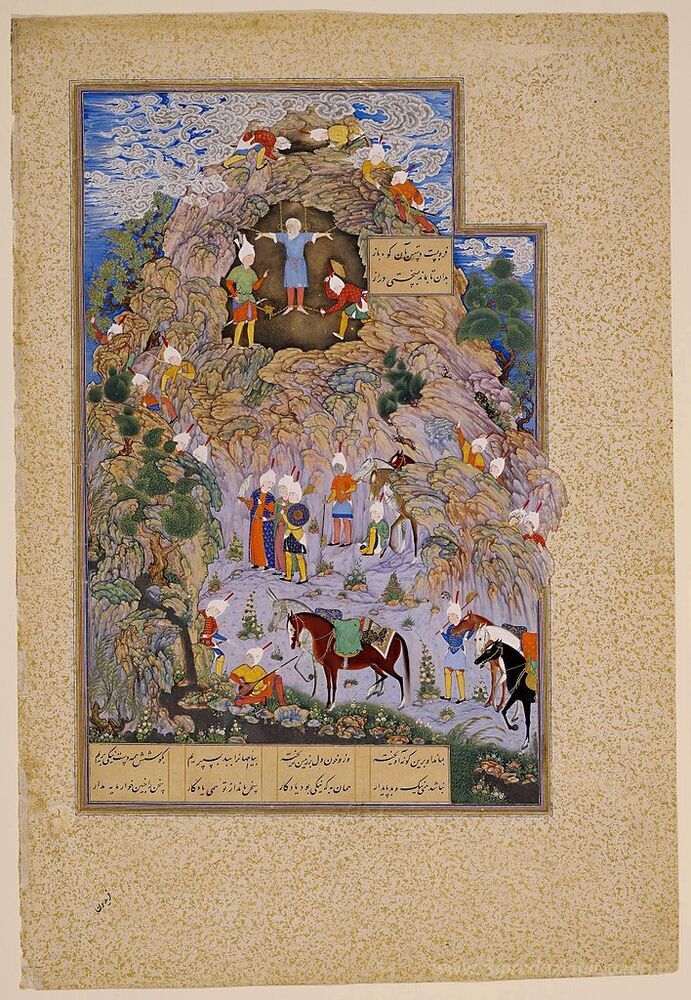 فروبست دستش بر آن کوه باز
بدان تا بماند بسختی دراز
بماند او برین گونه آویخته وزو خون دل بر زمین ریخته بیا تا جهانرا ببد نسپریم بکوشش همه دست نیکی بریم
نباشد همی نیک و بد پایدار همان به که نیکی بود یادگار سخن ماند از تو همی یادگار سخن را چنین خوار مایه مدار